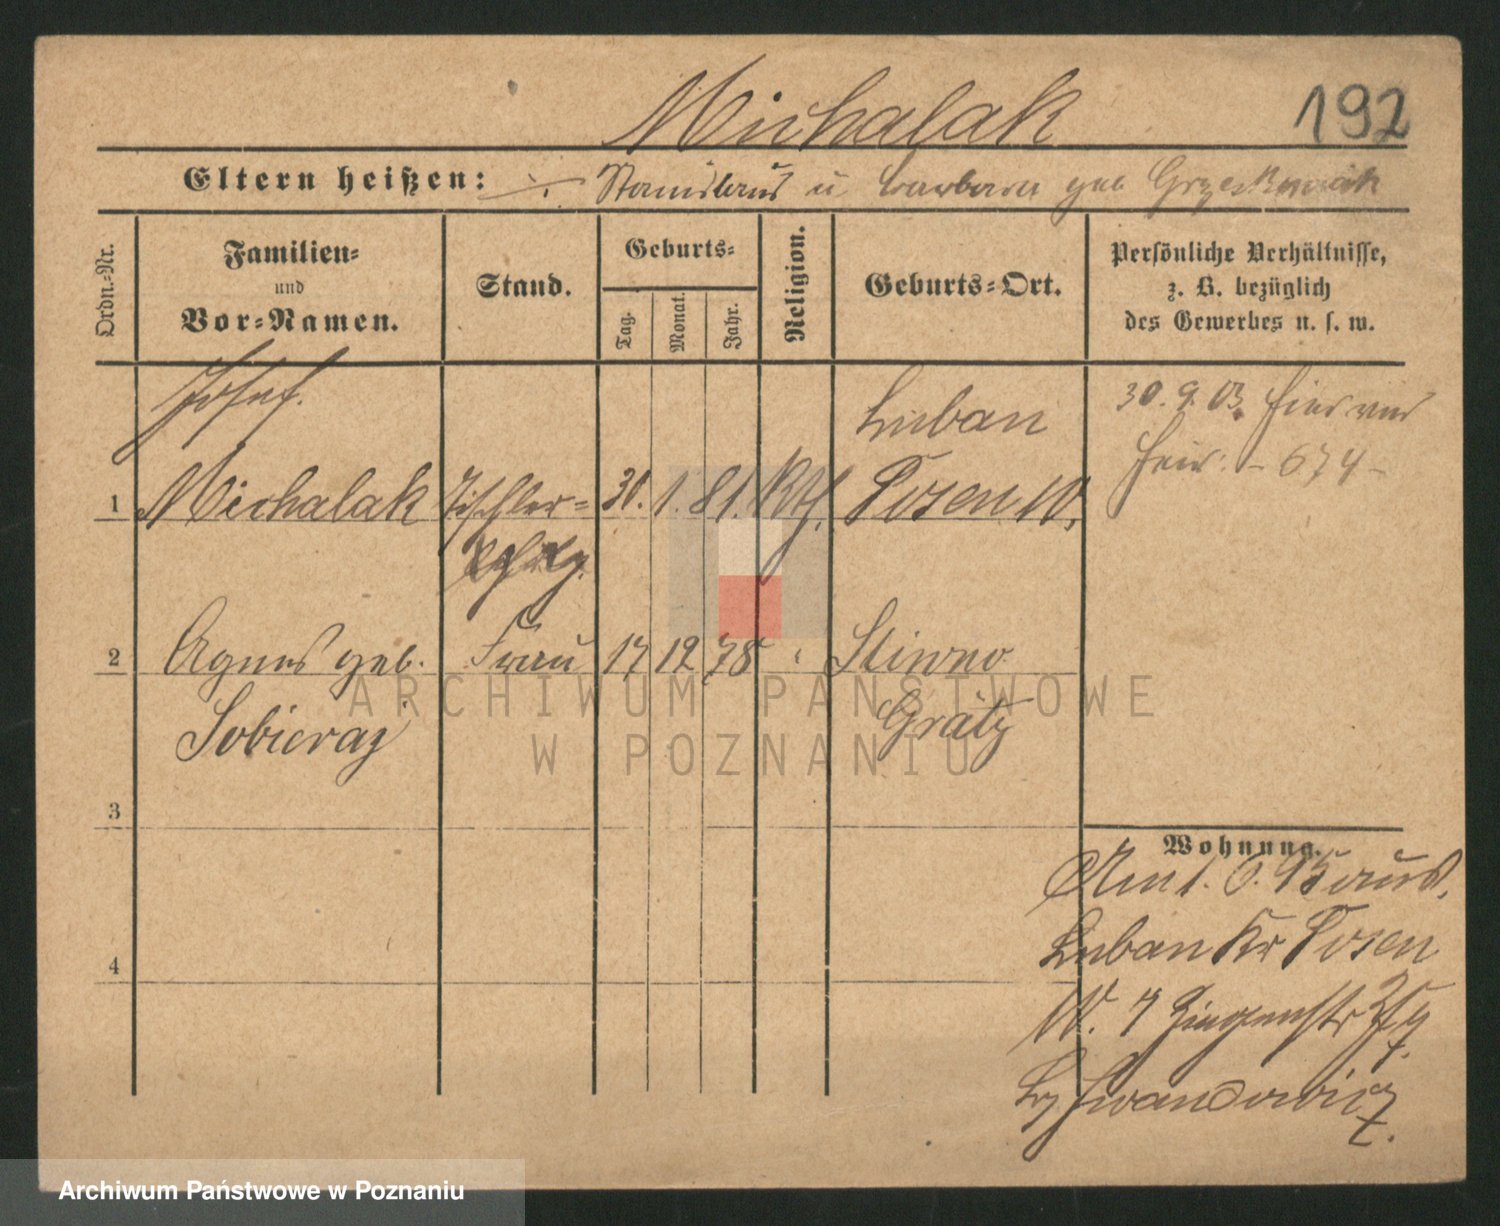 Michalak
192
Eltern heißen: Stanislaus u Barbara geb Grzeskowiak
Ordn.-Nr.
Familien-
und
Vor-Namen.
Stand.
Geburts-
Tag.
Monat.
Jahr.
Religion.
Geburts-Ort.
Persönliche Verhältnisse,
z. B. bezüglich
des Gewerbes u. s. w.
Josef.
1 Michalak Tischler- 30. 1. 81. Kth.
Luban
Posen W.
30. 9. 03.
- 674 -
2 Agnes geb. Frau 17 12 78 Stiwno
Sobieraj Grätz
3
4
Wohnung.
Am 1. 6. 95 aus.
Luban Kr Posen
W. 7
ARCHIWUM PAŃSTWOWE
W POZNANIU
Archiwum Państwowe w Poznaniu